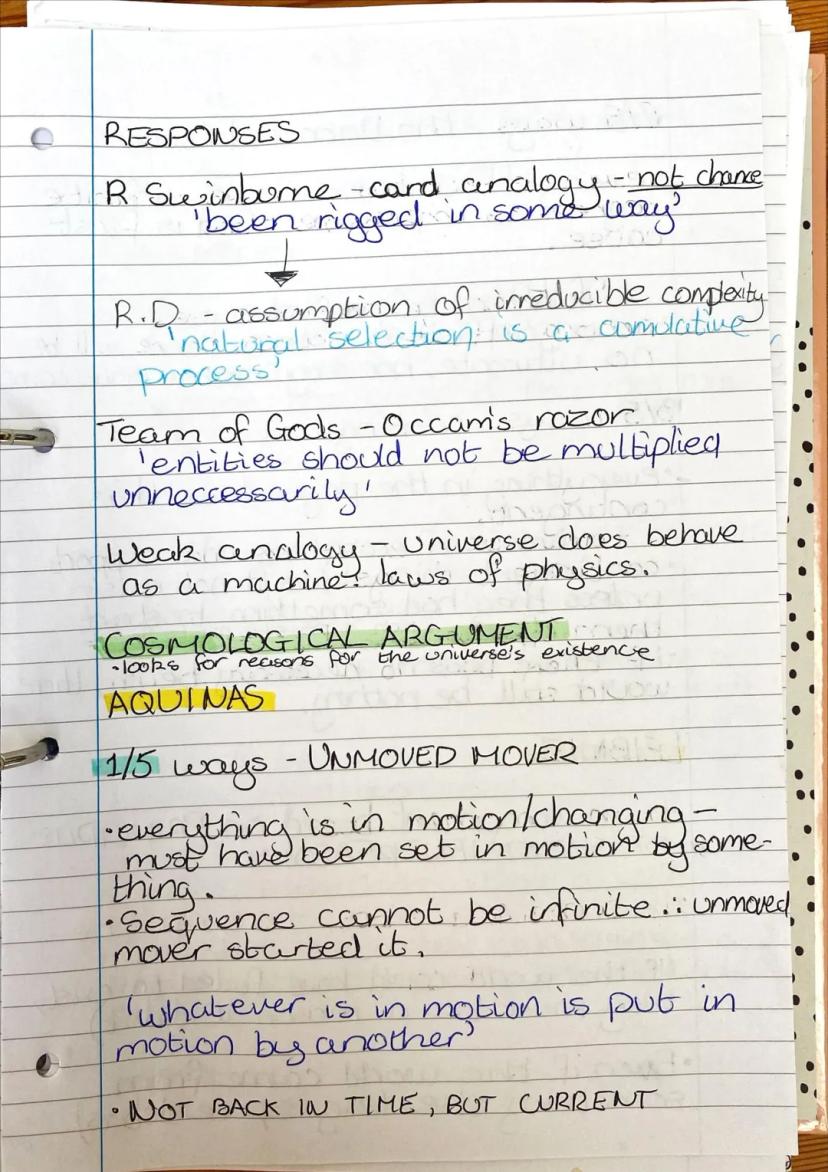 RESPONSES
R Swinburne - card analogy - not chance
'been rigged in some way'
R.D. - assumption of irreducible complexity
'natural selection is a comulative
process'
Team of Gods - Occam's razor
'entities should not be multiplied
unneccessarily'
Weak analogy - universe does behave
as a machine: laws of physics.
COSMOLOGICAL ARGUMENT
•looks for reasons for the universe's existence
AQUINAS
1/5 ways - UNMOVED MOVER
•everything is in motion/changing -
must have been set in motion by some-
thing.
•Sequence cannot be infinite ∴ unmoved
mover started it.
'whatever is in motion is put in
motion by another'
•NOT BACK IN TIME, BUT CURRENT